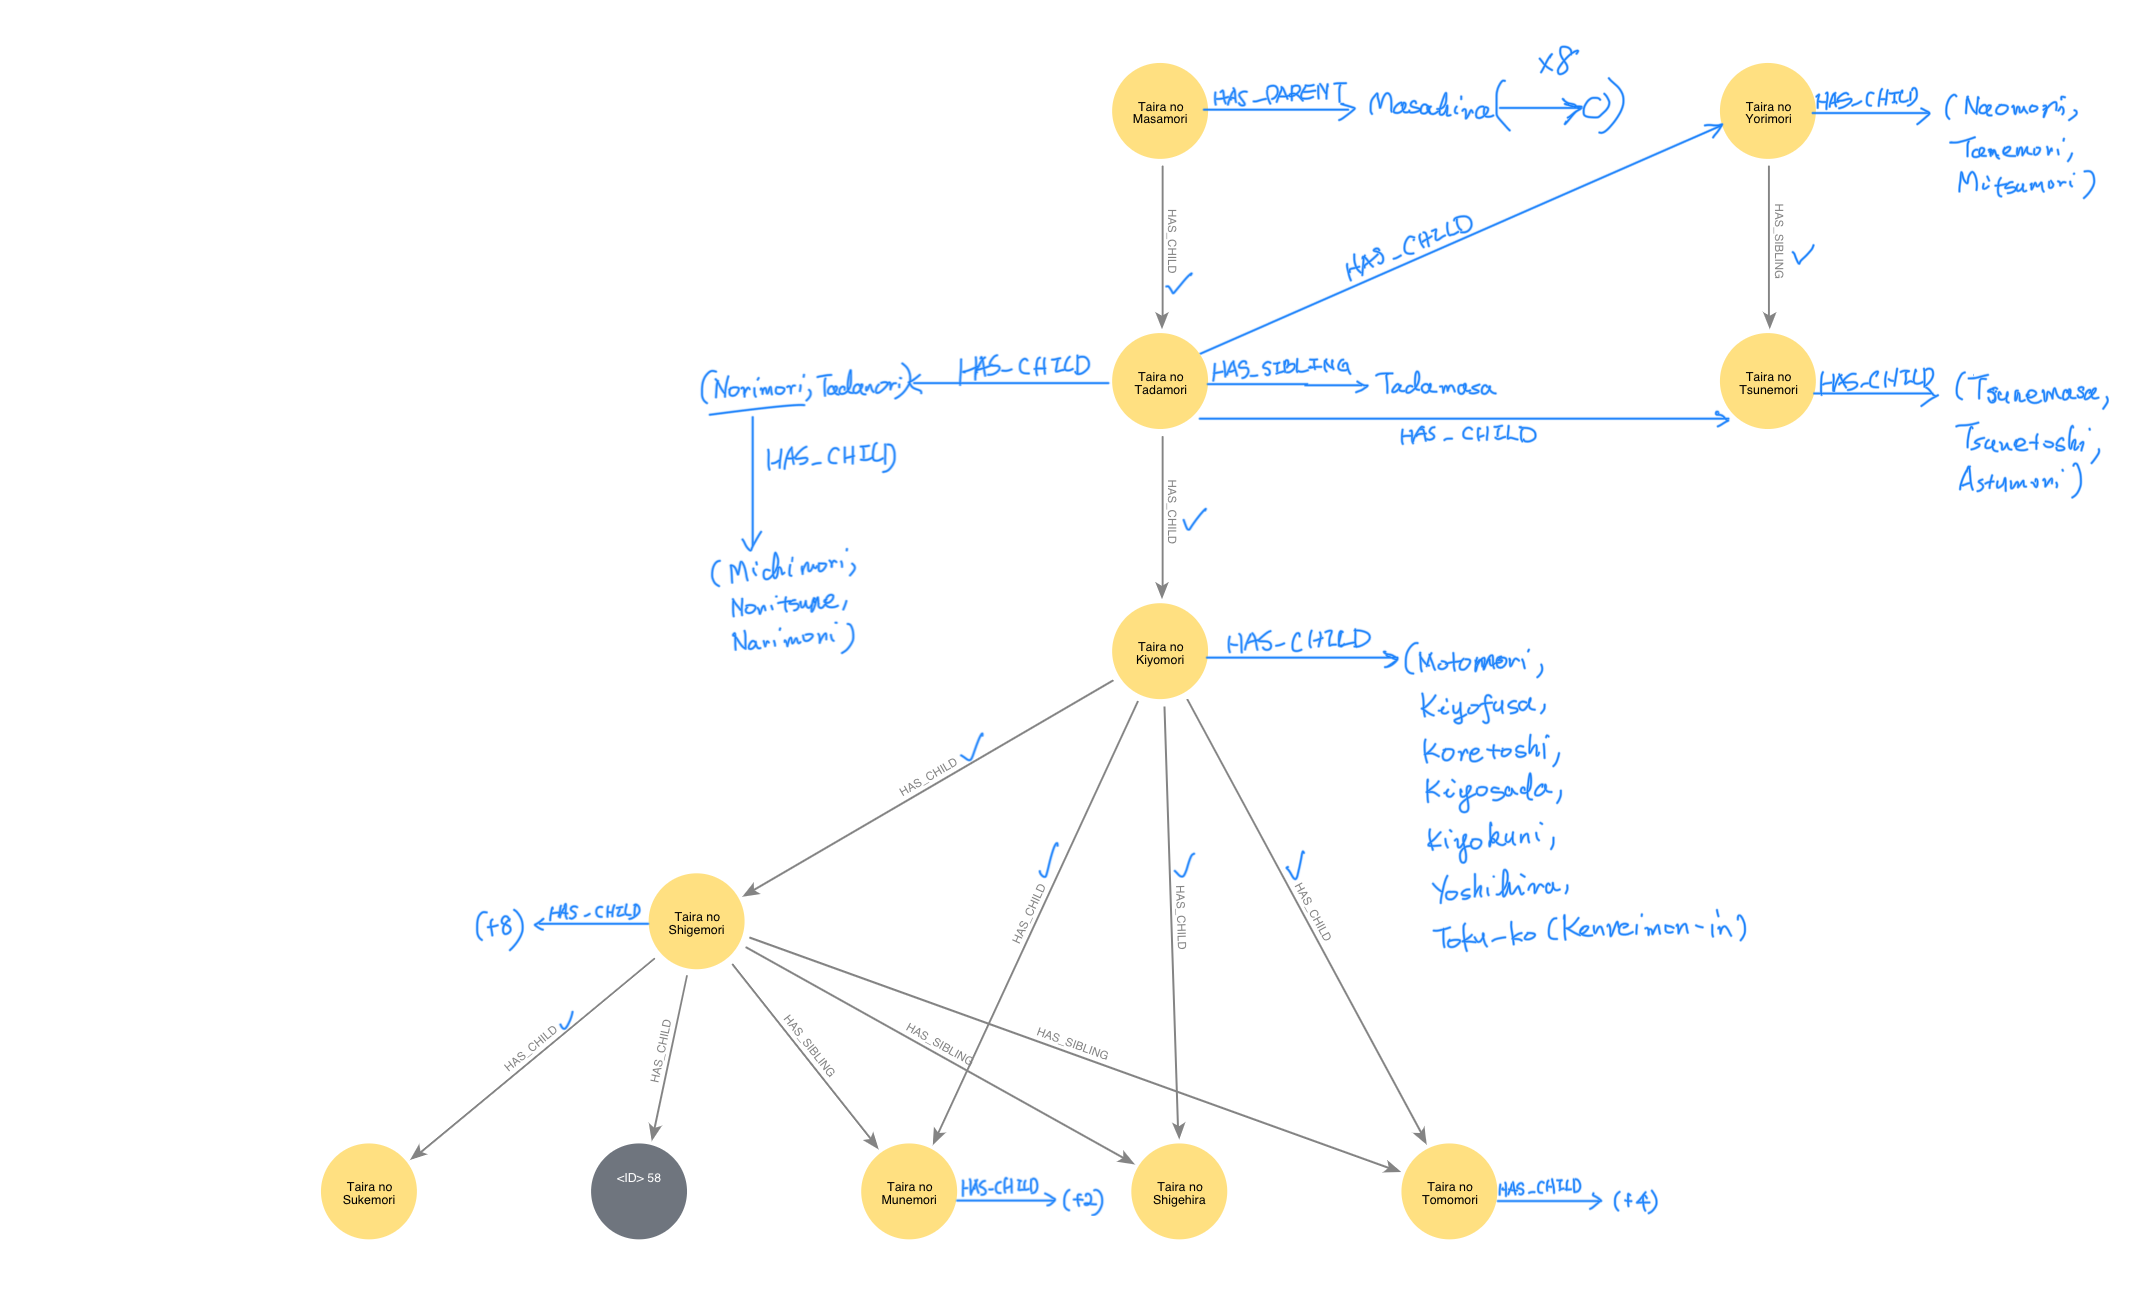 x8
Taira no
Masamori
HAS_PARENT
Masahira
Taira no
Yorimori
HAS_CHILD
(Naomori,
Tamemori,
Mitsumori)
HAS_CHILD
HAS_CHILD
HAS_SIBLING
(Norimori, Tadanori)
HAS_CHILD
Taira no
Tadamori
HAS_SIBLING
Tadamasa
HAS_CHILD
Taira no
Tsunemori
HAS_CHILD
(Tsunemasa,
Tsunetoshi,
Astumori)
HAS_CHILD
(Michimori,
Noritsune,
Narimori)
HAS_CHILD
Taira no
Kiyomori
HAS_CHILD
(Motomori,
Kiyofusa,
Koretoshi,
Kiyosada,
Kiyokuni,
Yoshihira,
Toku-ko (Kenreimon-in)
HAS_CHILD
HAS_CHILD
HAS_CHILD
HAS_CHILD
(+8)
HAS_CHILD
Taira no
Shigemori
HAS_CHILD
HAS_CHILD
HAS_SIBLING
HAS_SIBLING
HAS_SIBLING
Taira no
Sukemori
<ID> 58
Taira no
Munemori
HAS_CHILD
(+2)
Taira no
Shigehira
Taira no
Tomomori
HAS_CHILD
(+4)